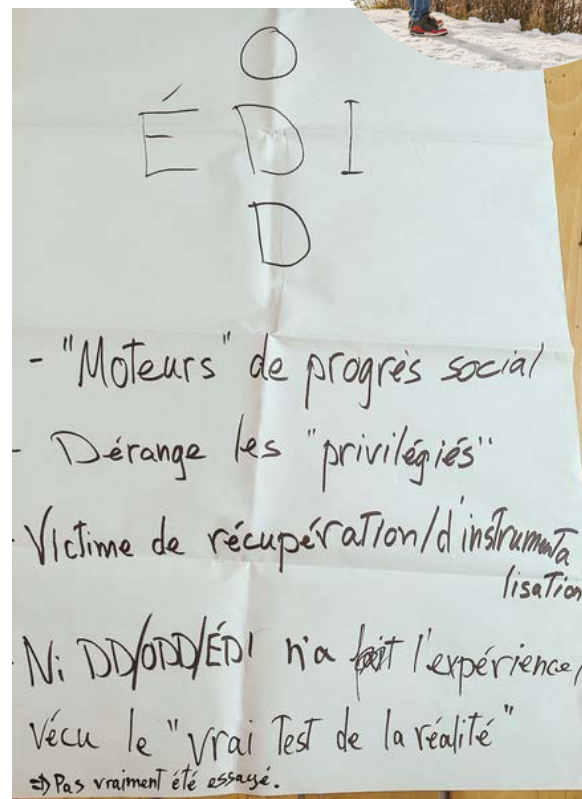 O
É D I
D
- "Moteurs" de progrès social
- Dérange les "privilégiés"
- Victime de récupération/d'instrumenta
lisation
- Ni DD/ODD/ÉDI n'a fait l'expérience/
vécu le "vrai test de la réalité"
=> Pas vraiment été essayé.